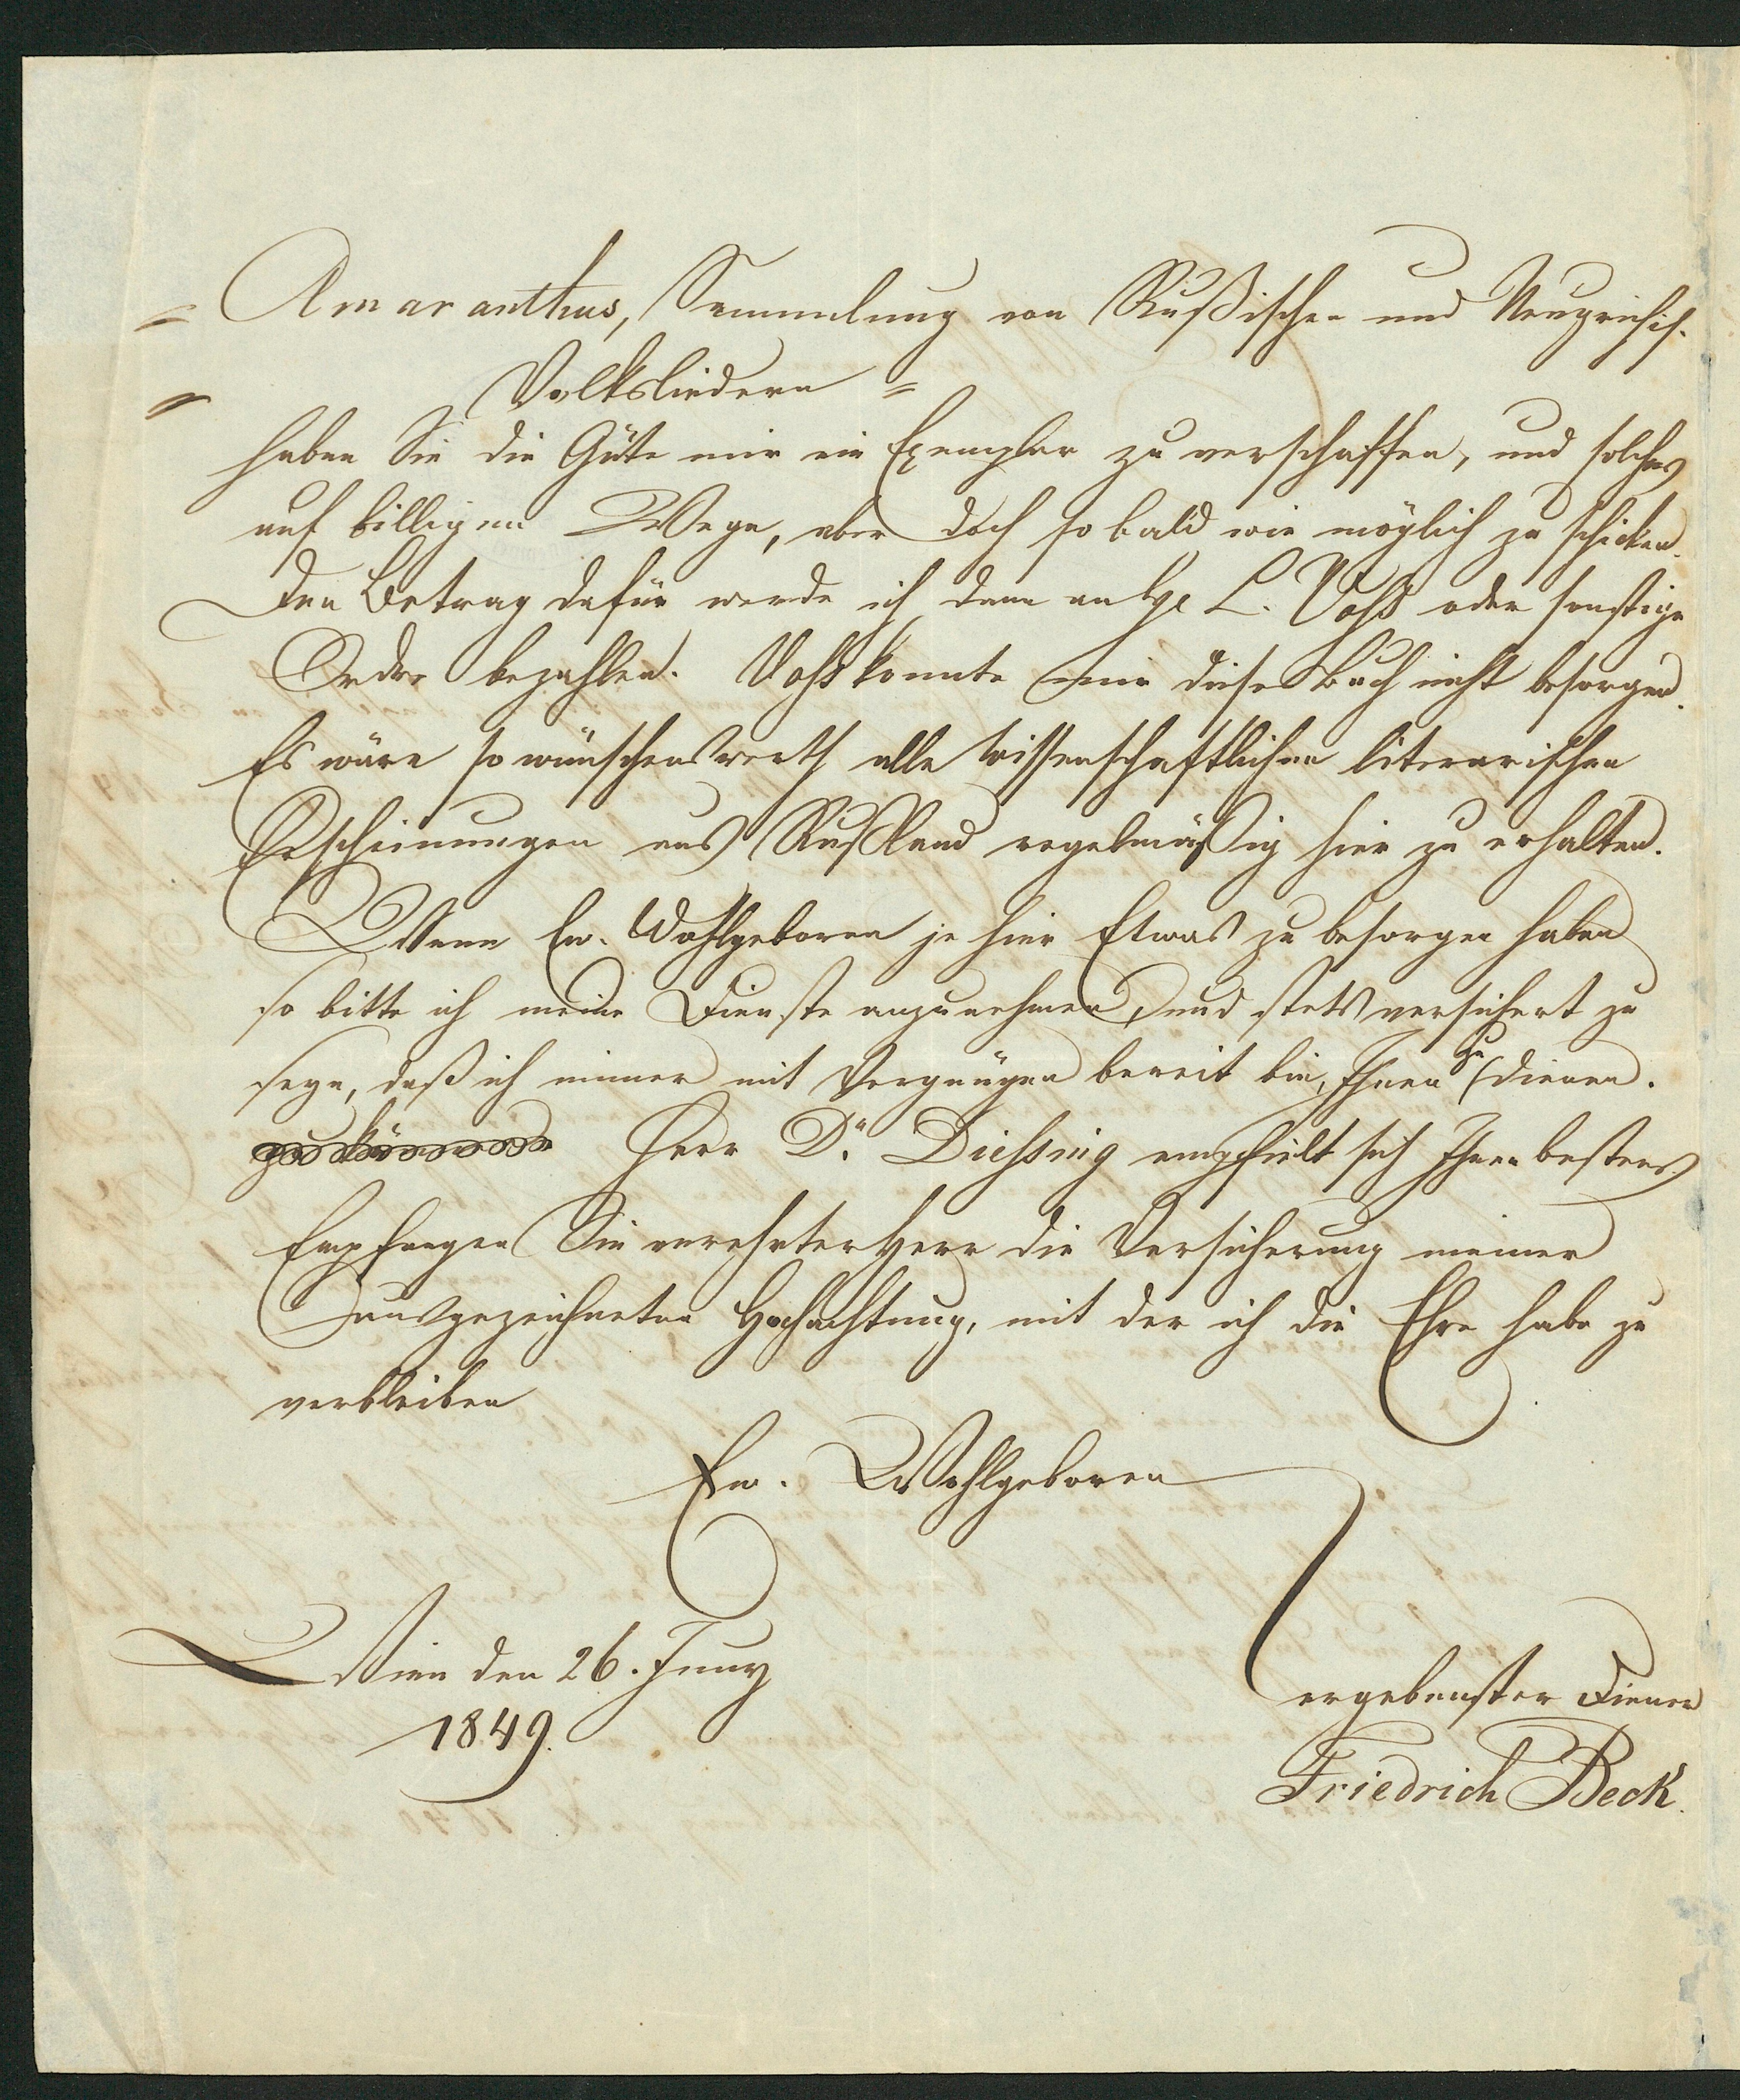 = Amaranthus, Sammlung von Rußischen und Neugriechisch.
= Volksliedern =
haben Sie die Güte mir ein Exemplar zu verschaffen, und solches
auf billigem Wege, aber doch so bald wie möglich zu schicken.
Den Betrag dafür werde ich dann an L. Voß oder sonstige
Ordre bezahlen. Voß konnte mir dieses Buch nicht besorgen.
Es wäre so wünschenswerth alle wissenschaftlichen literarischen
Erscheinungen aus Rußland regelmäßig hier zu erhalten.
Wenn Ew. Wohlgeboren je hier Etwas zu besorgen haben
so bitte ich meine Dienste anzunehmen, und stets versichert zu
seyn, daß ich immer mit Vergnügen bereit bin, Ihnen zu dienen.
Herr Dr. Dießing empfielt sich Ihnen bestens.
Empfangen Sie verehrter Herr die Versicherung meiner
ausgezeichneten Hochachtung, mit der ich die Ehre habe zu
verbleiben
Ew. Wohlgeboren
Wien den 26. Juny
1849.
ergebenster Diener
Friedrich Beck.